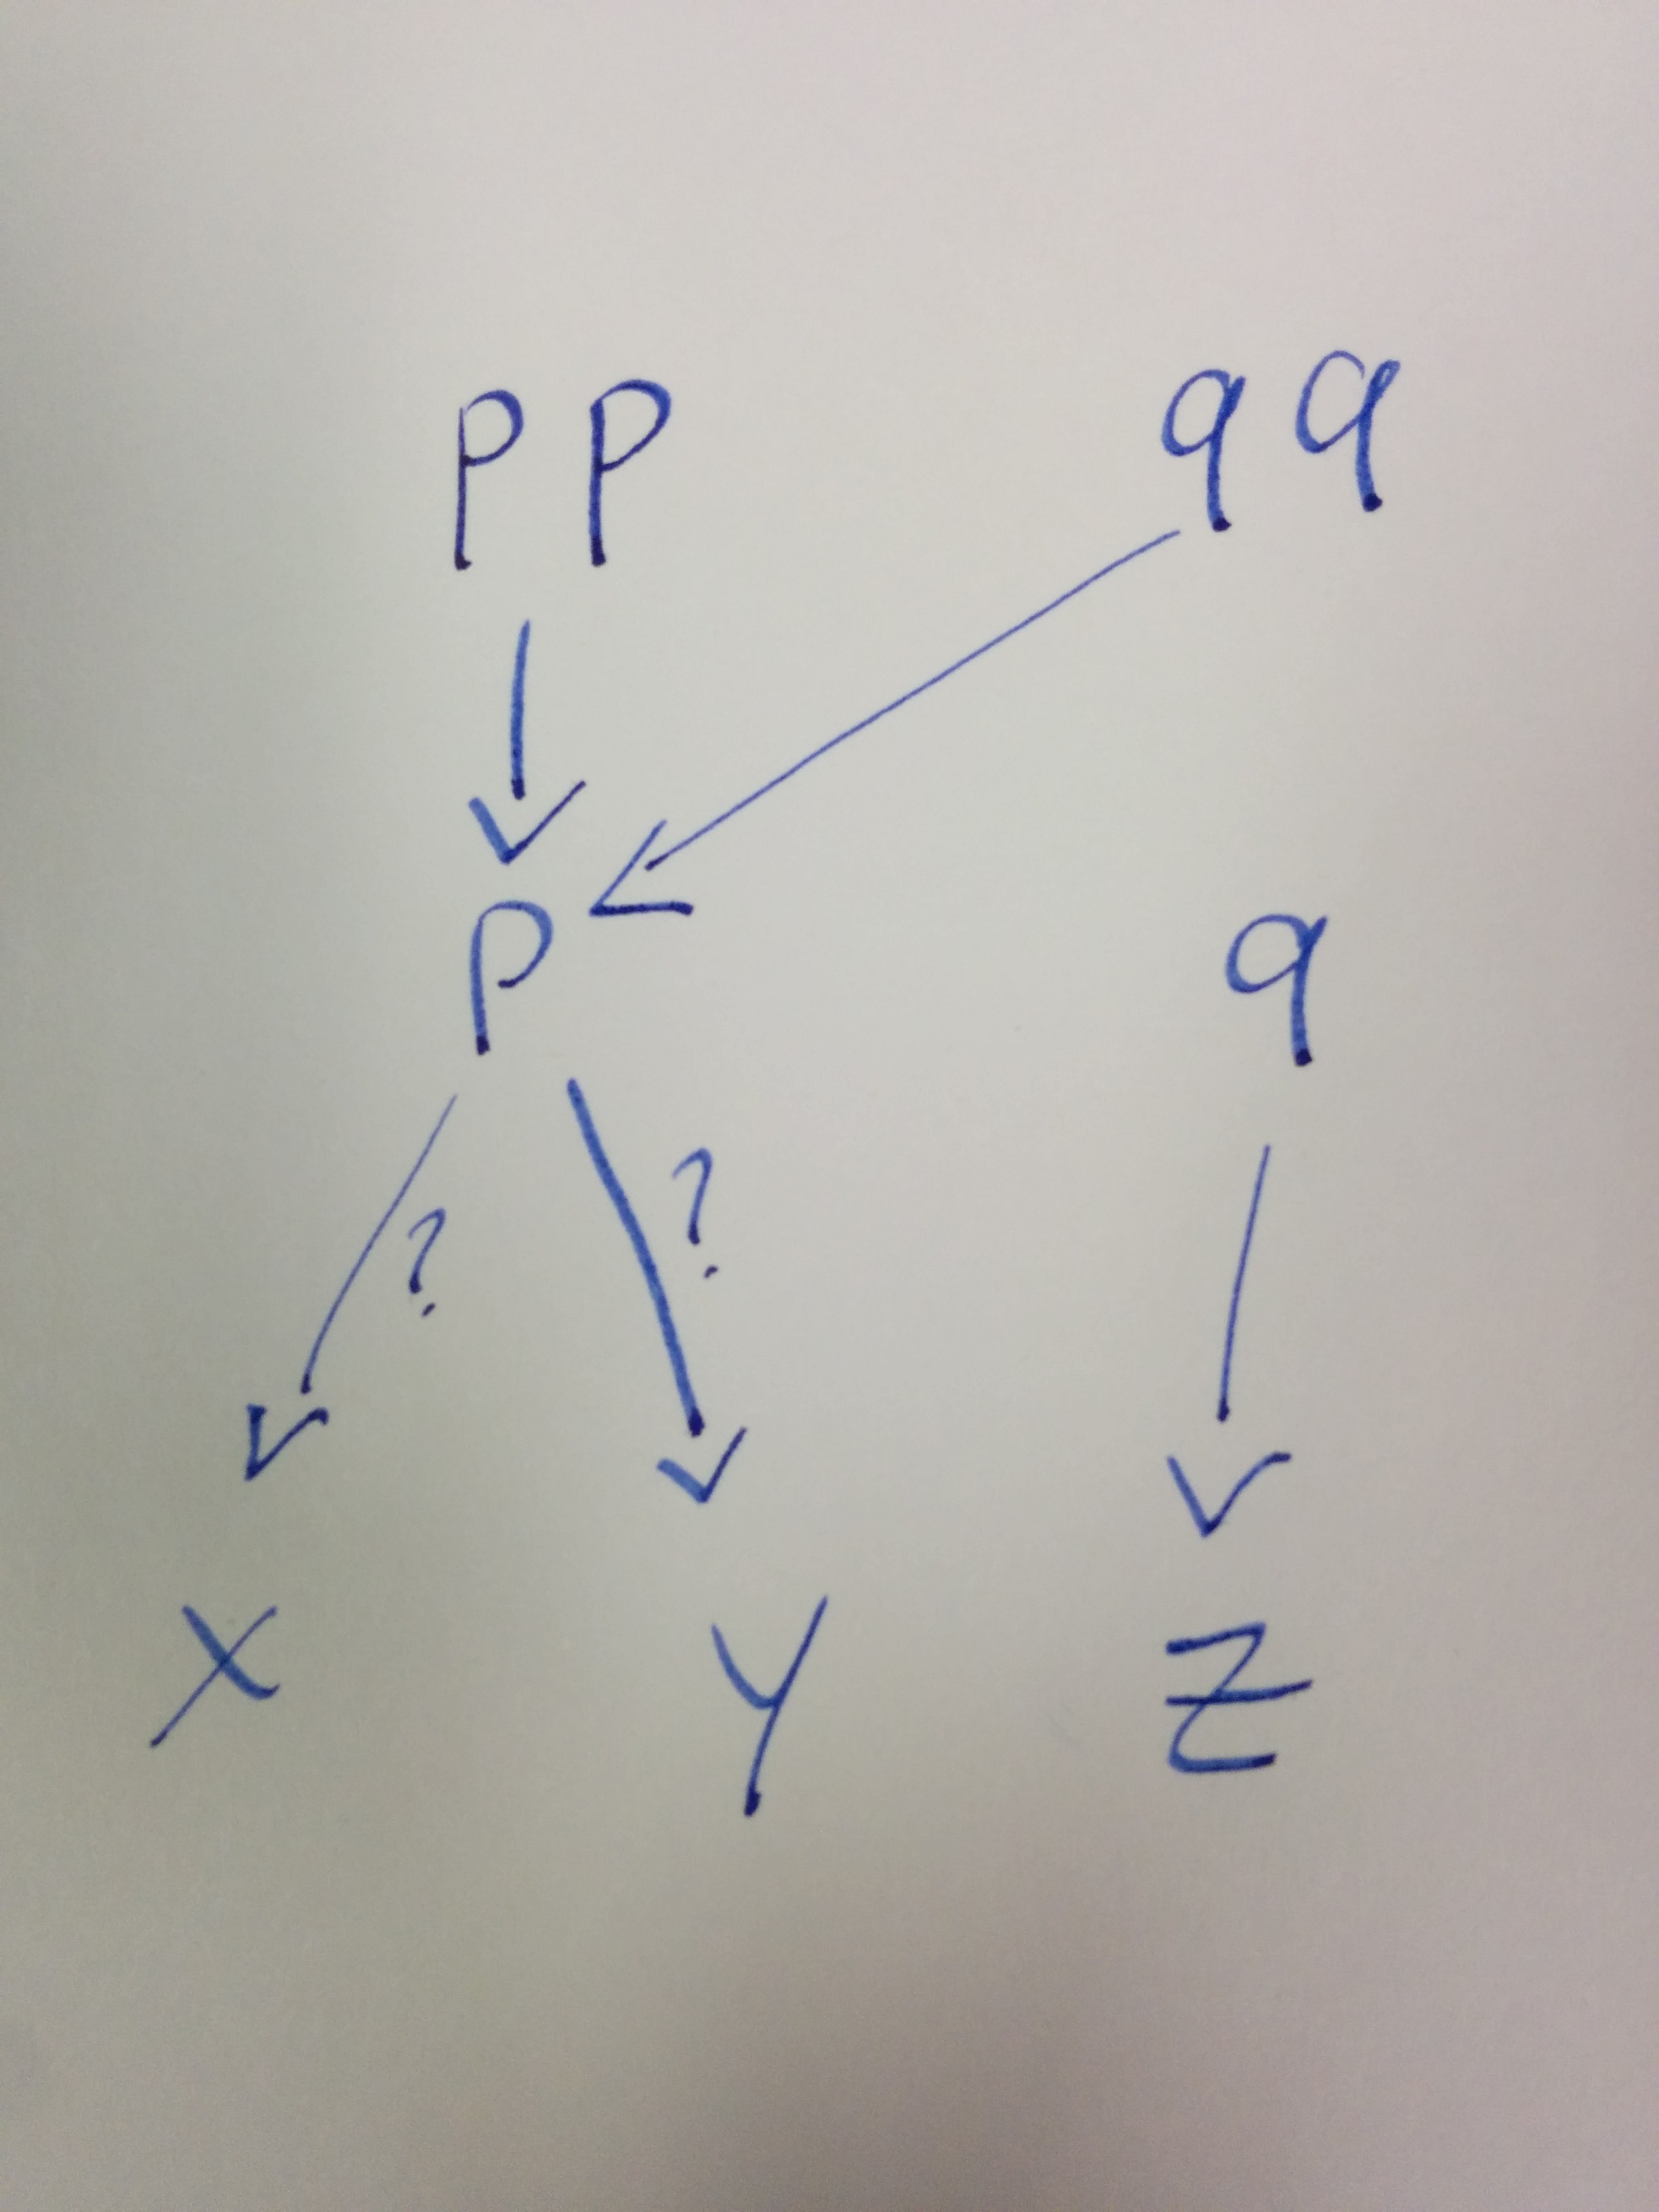 pp qq
p q
? ?
x y z